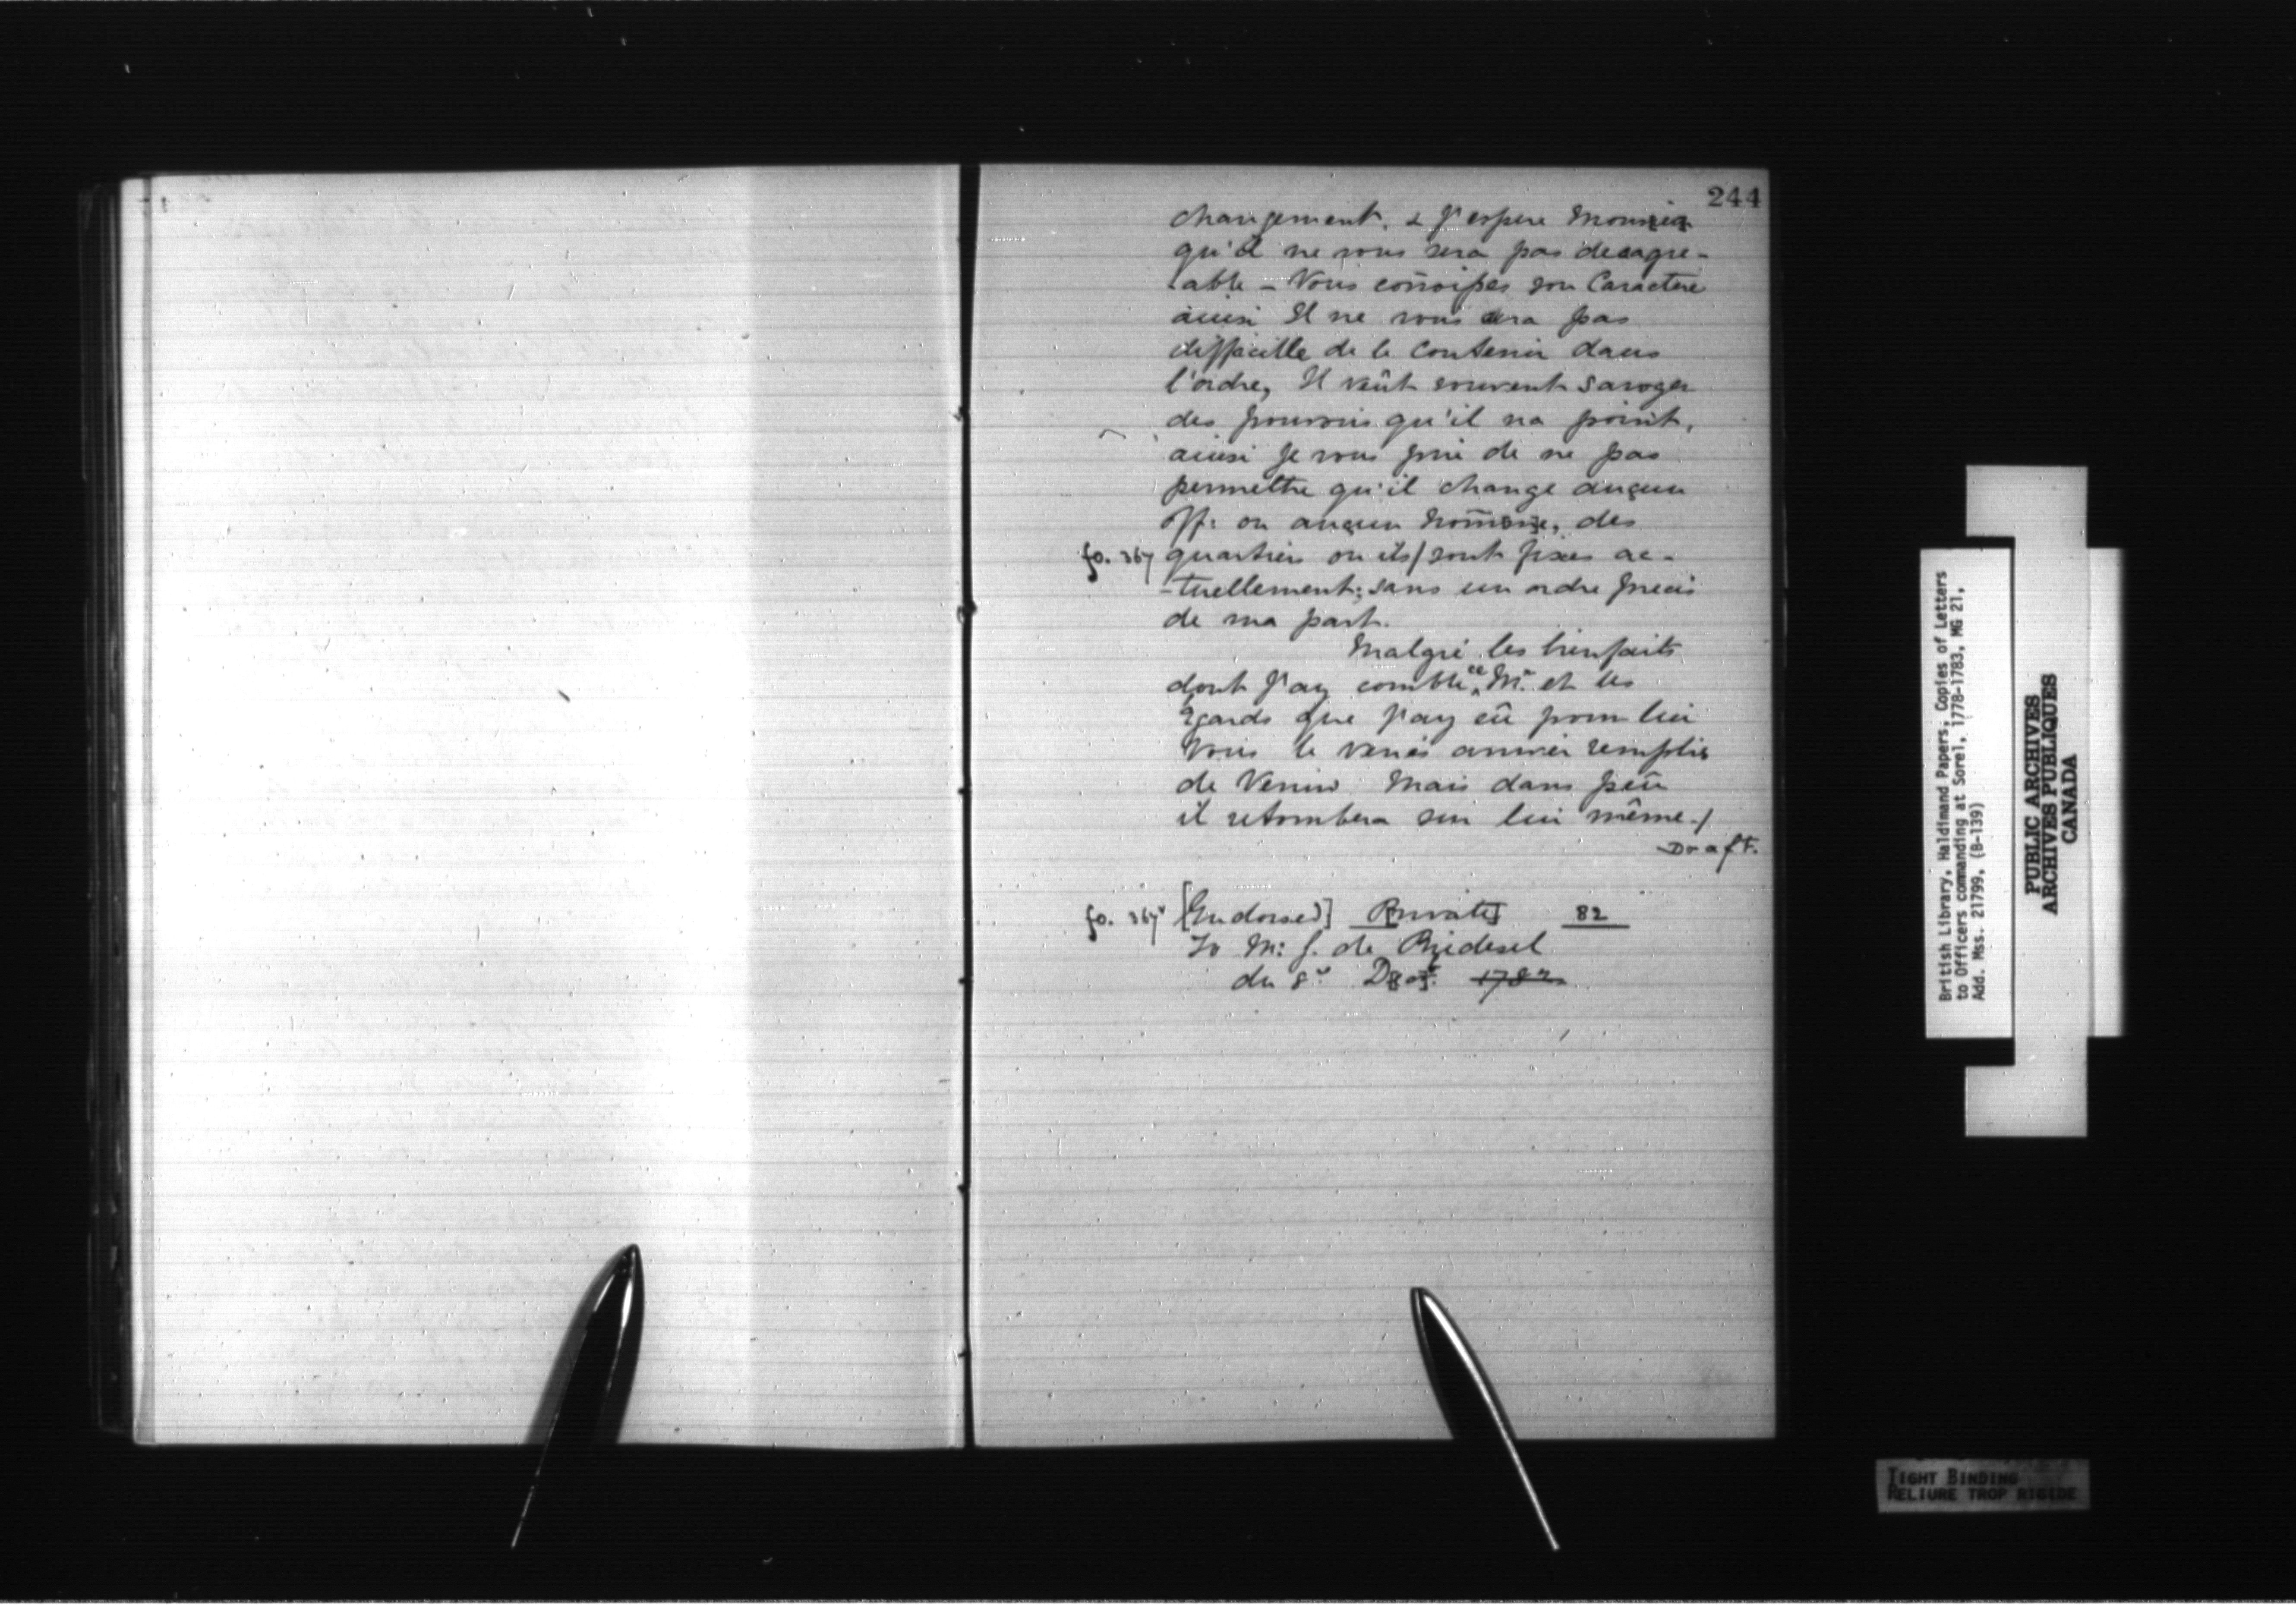 244
changement. & J'espere Monsieur
qu'il ne vous sera pas desagre-
-able - Vous connoisses son Caractere
ainsi Il ne vous sera pas
difficille de le Contenir dans
l'ordre, Il veût souvent saroger
des pouvoirs qu'il na point,
ainsi je vous prie de ne pas
permettre qu'il change auçun
off: ou auçun homme, des
fo. 367 quartiers ou ils/sont fixés ac-
-tuellement; sans un ordre precis
de ma part.
Malgré les bienfaits
dont J'ay comblé ce Mr. et les
Egards que J'ay eû pour lui
Vous le verrés arriver remplis
de Venin Mais dans peû
il retombera sur lui même -/
Draft.
fo. 367v [Endorsed] Private] 82
To M: g. de Riedesel
du 8e
1782
British Library, Haldimand Papers, Copies of Letters
to Officers commanding at Sorel, 1778-1783, MG 21,
Add. Mss. 21799, (B-139)
PUBLIC ARCHIVES
ARCHIVES PUBLIQUES
CANADA
TIGHT BINDING
RELIURE TROP RIGIDE